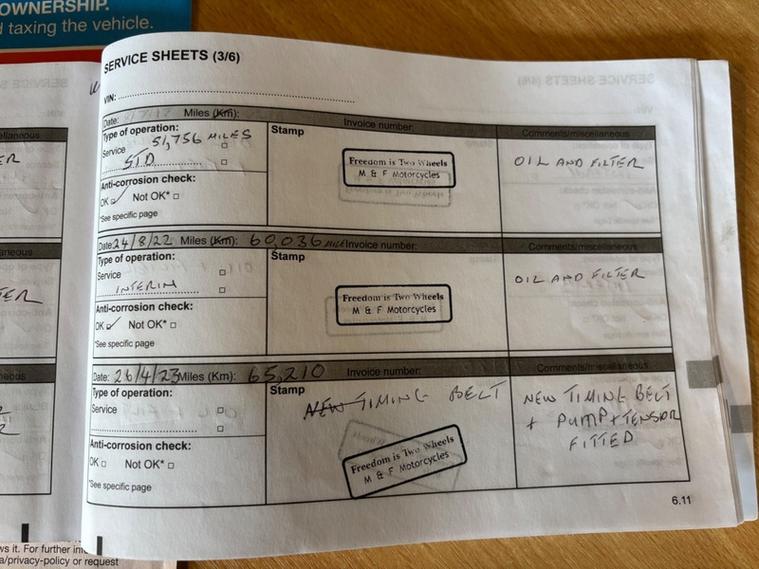 OWNERSHIP.
taxing the vehicle.
SERVICE SHEETS (3/6)
VIN:
Date: Miles (Km): Invoice number: Comments/miscellaneous
Type of operation: 51,756 MILES Stamp
Service
STD
OIL AND FILTER
Freedom is Two Wheels
M & F Motorcycles
Anti-corrosion check:
OK ✓ Not OK* □
*See specific page
Date: 24/8/22 Miles (Km): 60,036 MILE Invoice number: Comments/miscellaneous
Type of operation: Stamp
Service
INTERIM
OIL AND FILTER
Freedom is Two Wheels
M & F Motorcycles
Anti-corrosion check:
OK ✓ Not OK* □
*See specific page
Date: 26/4/23 Miles (Km): 65,210 Invoice number: Comments/miscellaneous
Type of operation: Stamp
NEW TIMING BELT
Service
NEW TIMING BELT
+ PUMP + TENSOR
FITTED
Freedom is Two Wheels
M & F Motorcycles
Anti-corrosion check:
OK □ Not OK* □
*See specific page
6.11
ws it. For further
a/privacy-policy or request